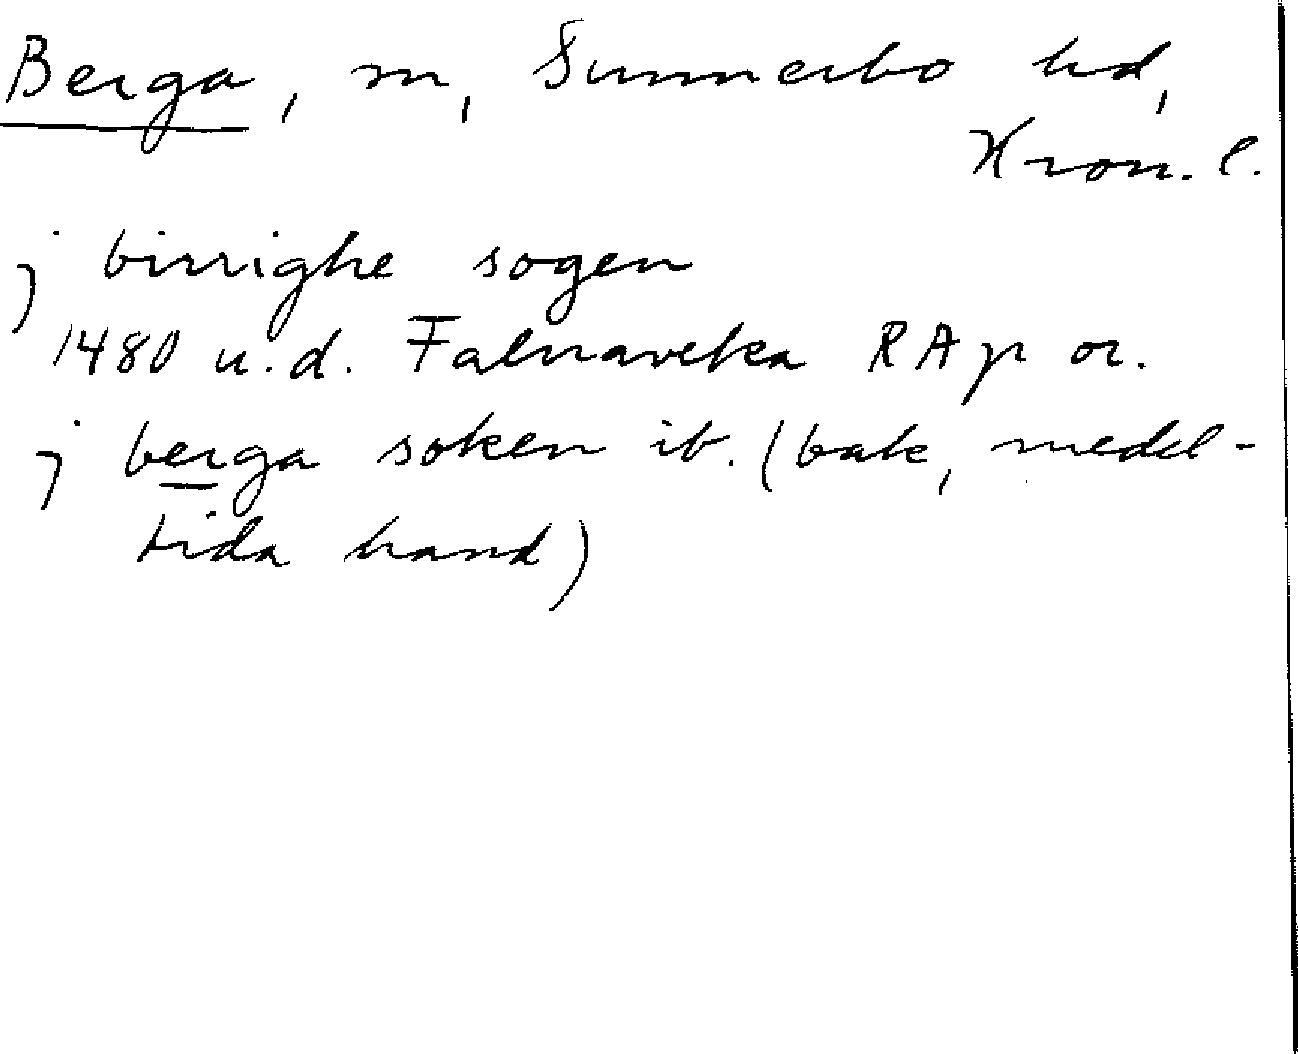 Berga, sn, Sunnerbo hd,
Kron. l.
j birrighe sogen
1480 u.d. Falnaveka RAp or.
j berga soken ib. (bak, medel-
tida hand)